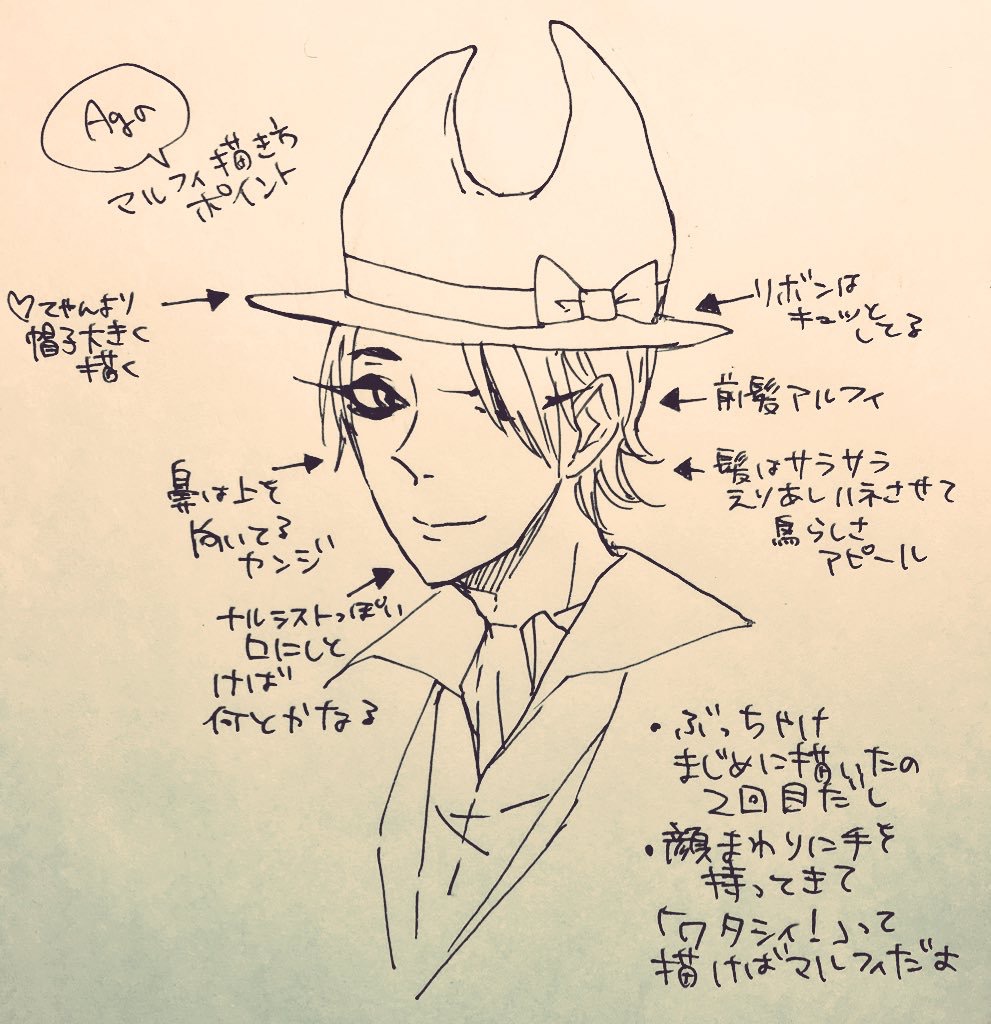 Ago
マルフィ描き方
ポイント
♡てゃんより
帽子大きく
描く
リボンは
キュッと
してる
前髪アルフィ
髪はサラサラ
えりあしハネさせて
鳥らしさ
アピール
鼻は上を
向いてる
カンジ
ナルシストっぽい
口にしと
けば
何とかなる
・ぶっちゃけ
まじめに描いたの
2回目だし
・顔まわりに手を
持ってきて
「ワタシィ!」って
描けばマルフィだよ